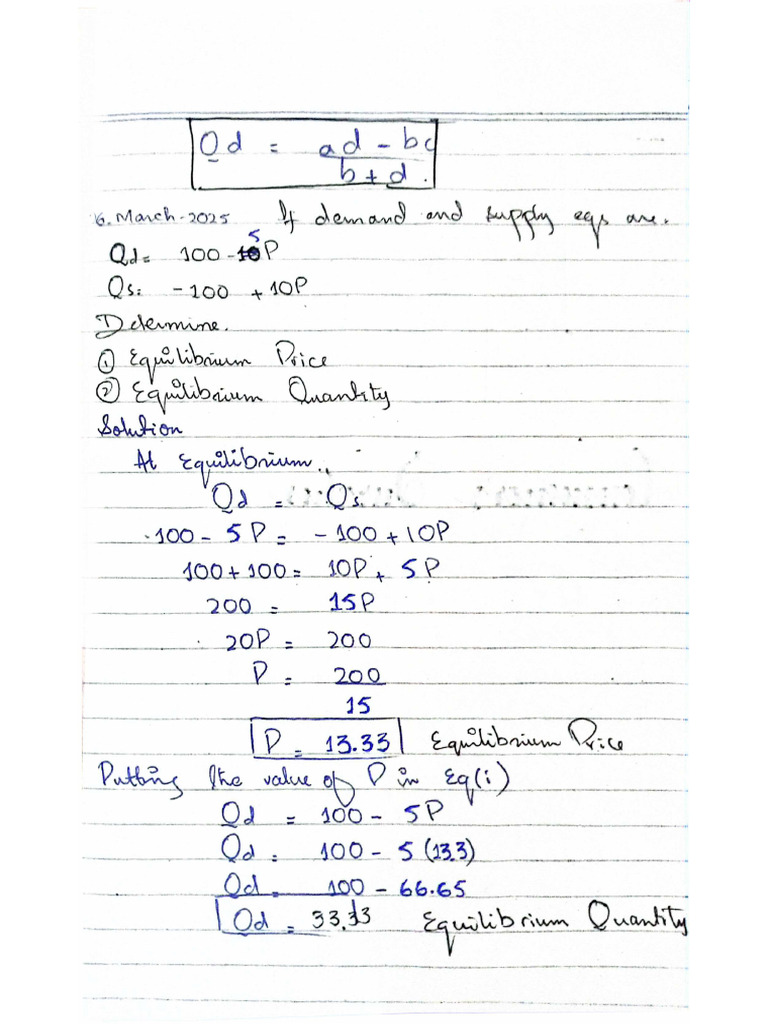 Qd = ad - bc
b + d.
6. March-2025 If demand and supply eqs are.
Qd = 100 - 5P
Qs = -100 + 10P
Determine.
① Equilibrium Price
② Equilibrium Quantity
Solution
At Equilibrium.
Qd = Qs
100 - 5P = -100 + 10P
100 + 100 = 10P + 5P
200 = 15P
20P = 200
P = 200
15
P = 13.33 Equilibrium Price
Putting the value of P in Eq(i)
Qd = 100 - 5P
Qd = 100 - 5 (13.3)
Qd = 100 - 66.65
Qd = 33.33 Equilibrium Quantity